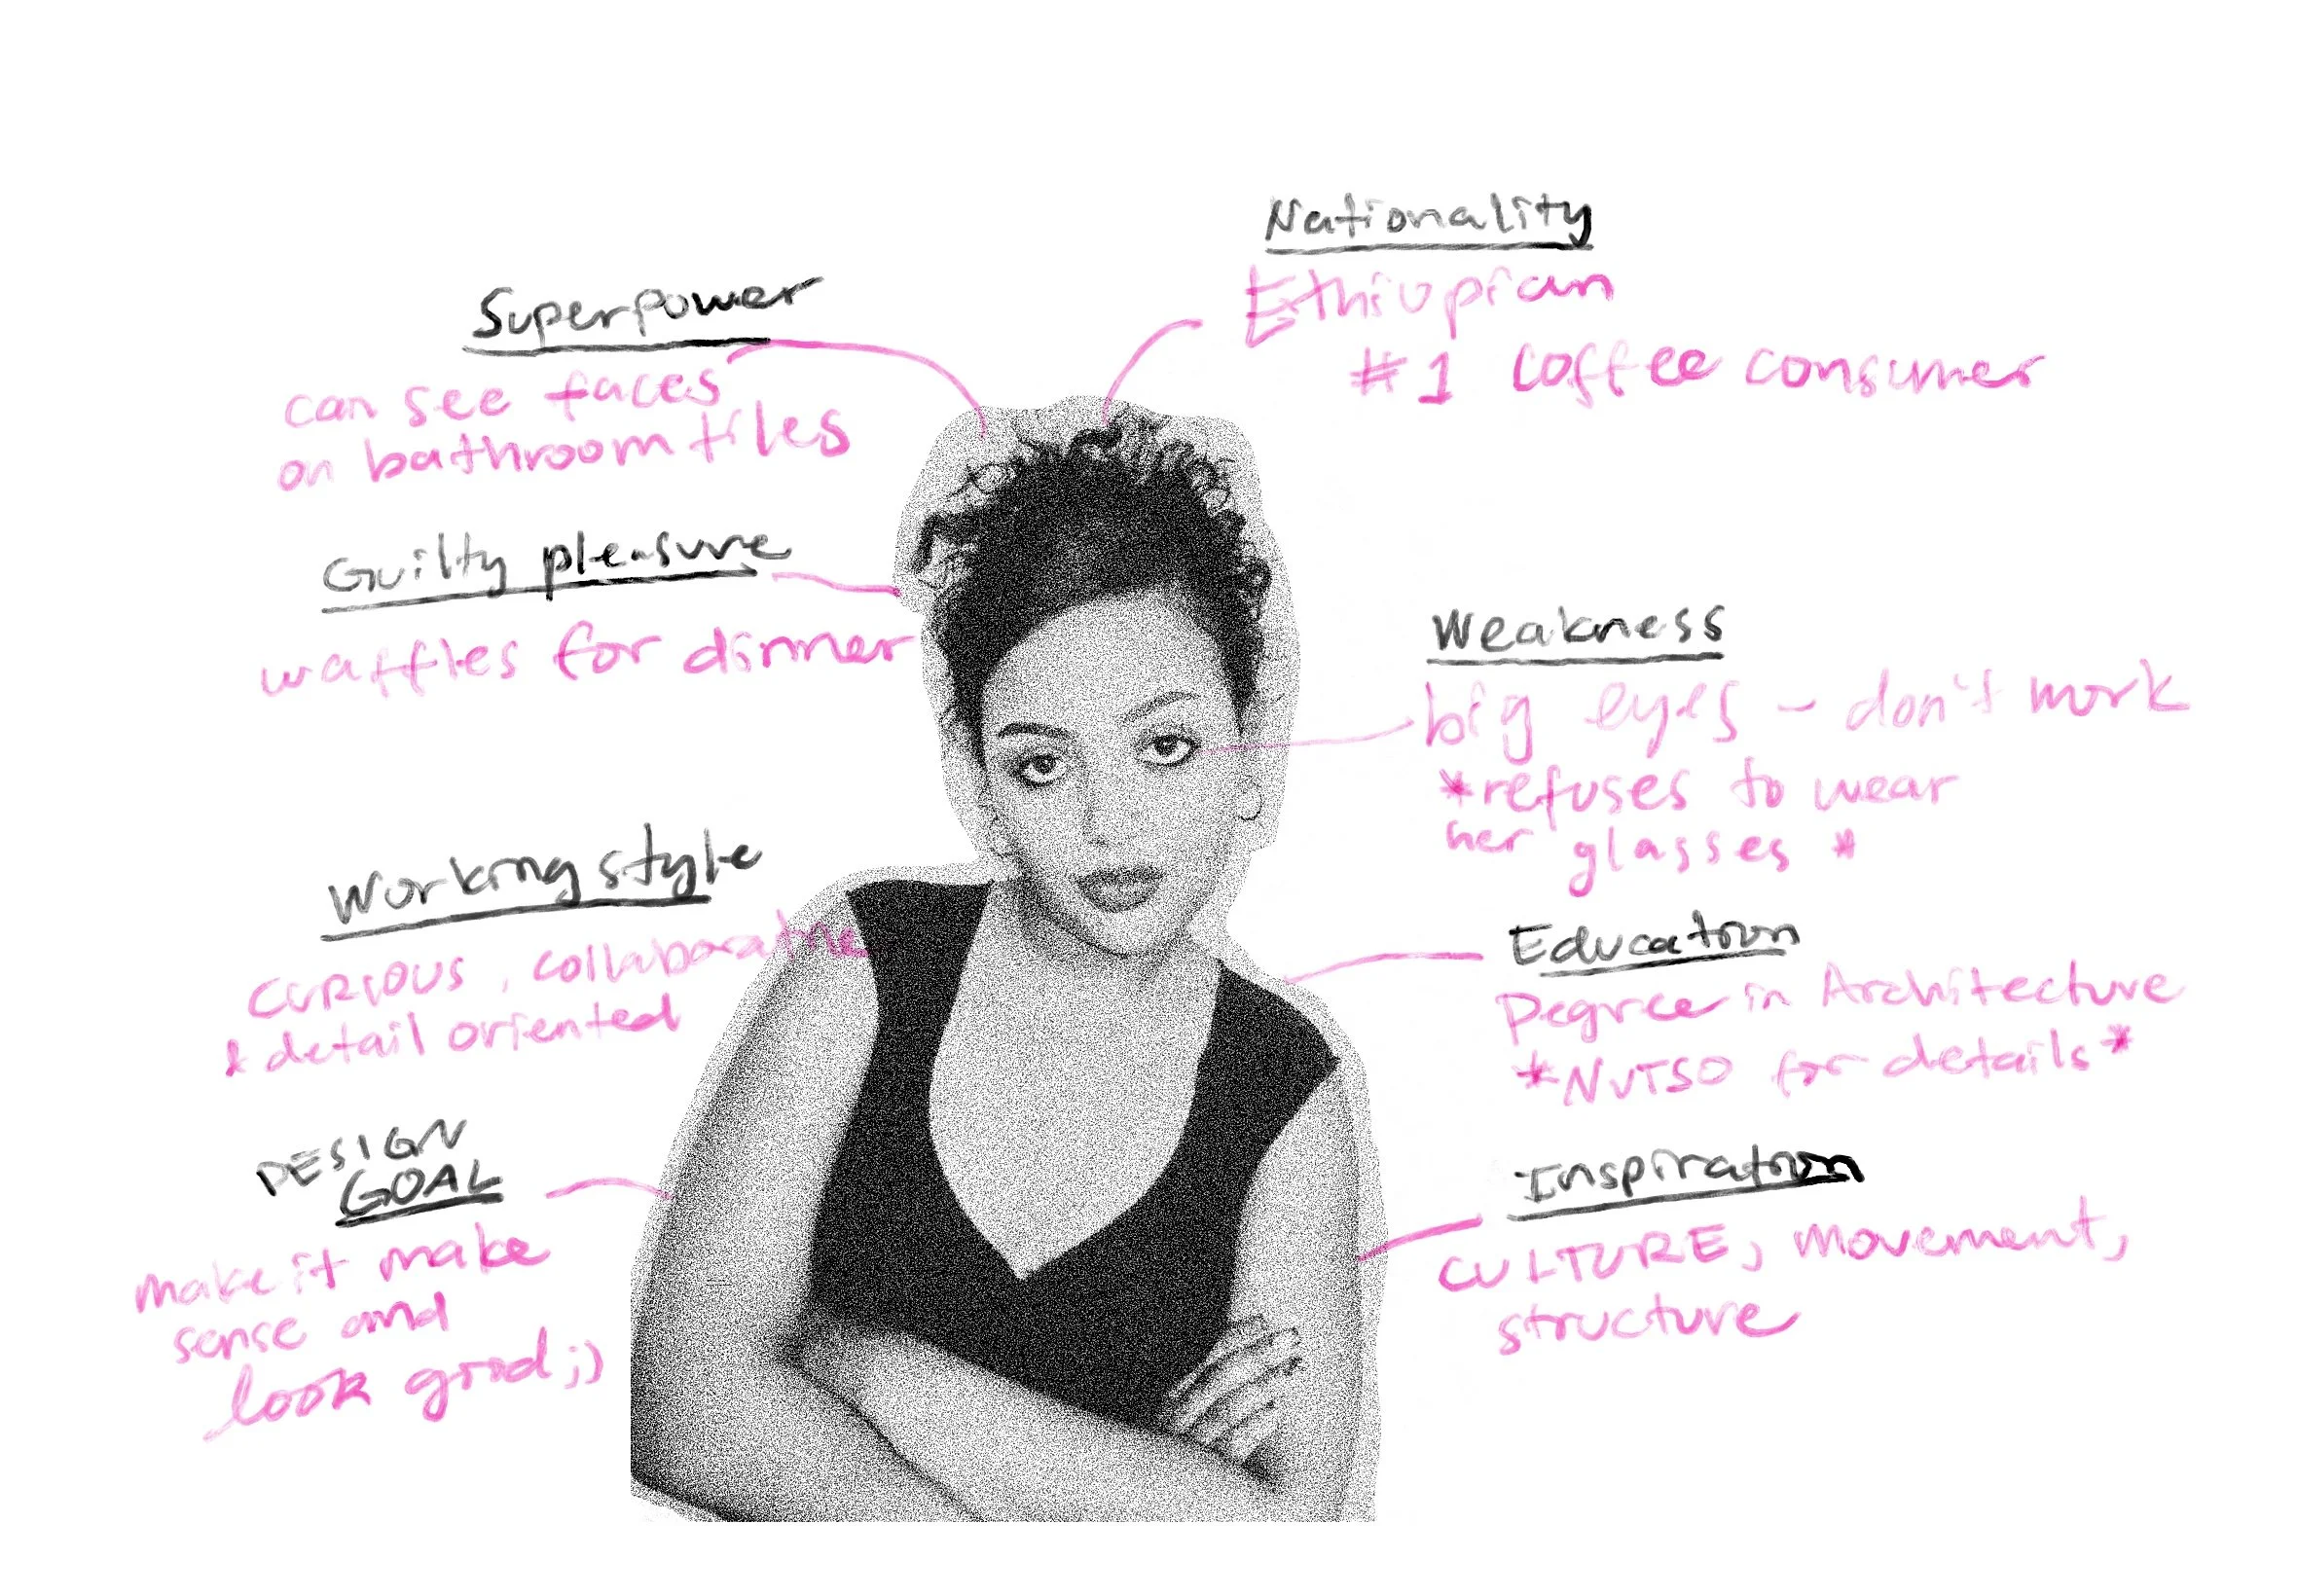 Superpower
can see faces
on bathroom tiles
Guilty pleasure
waffles for dinner
Working style
CURIOUS, collaborative
& detail oriented
DESIGN
GOAL
make it make
sense and
look good ;)
Nationality
Ethiopian
#1 coffee consumer
Weakness
big eyes - don't work
*refuses to wear
her glasses *
Education
Degree in Architecture
*NUTSO for details*
Inspiration
CULTURE, movement,
structure